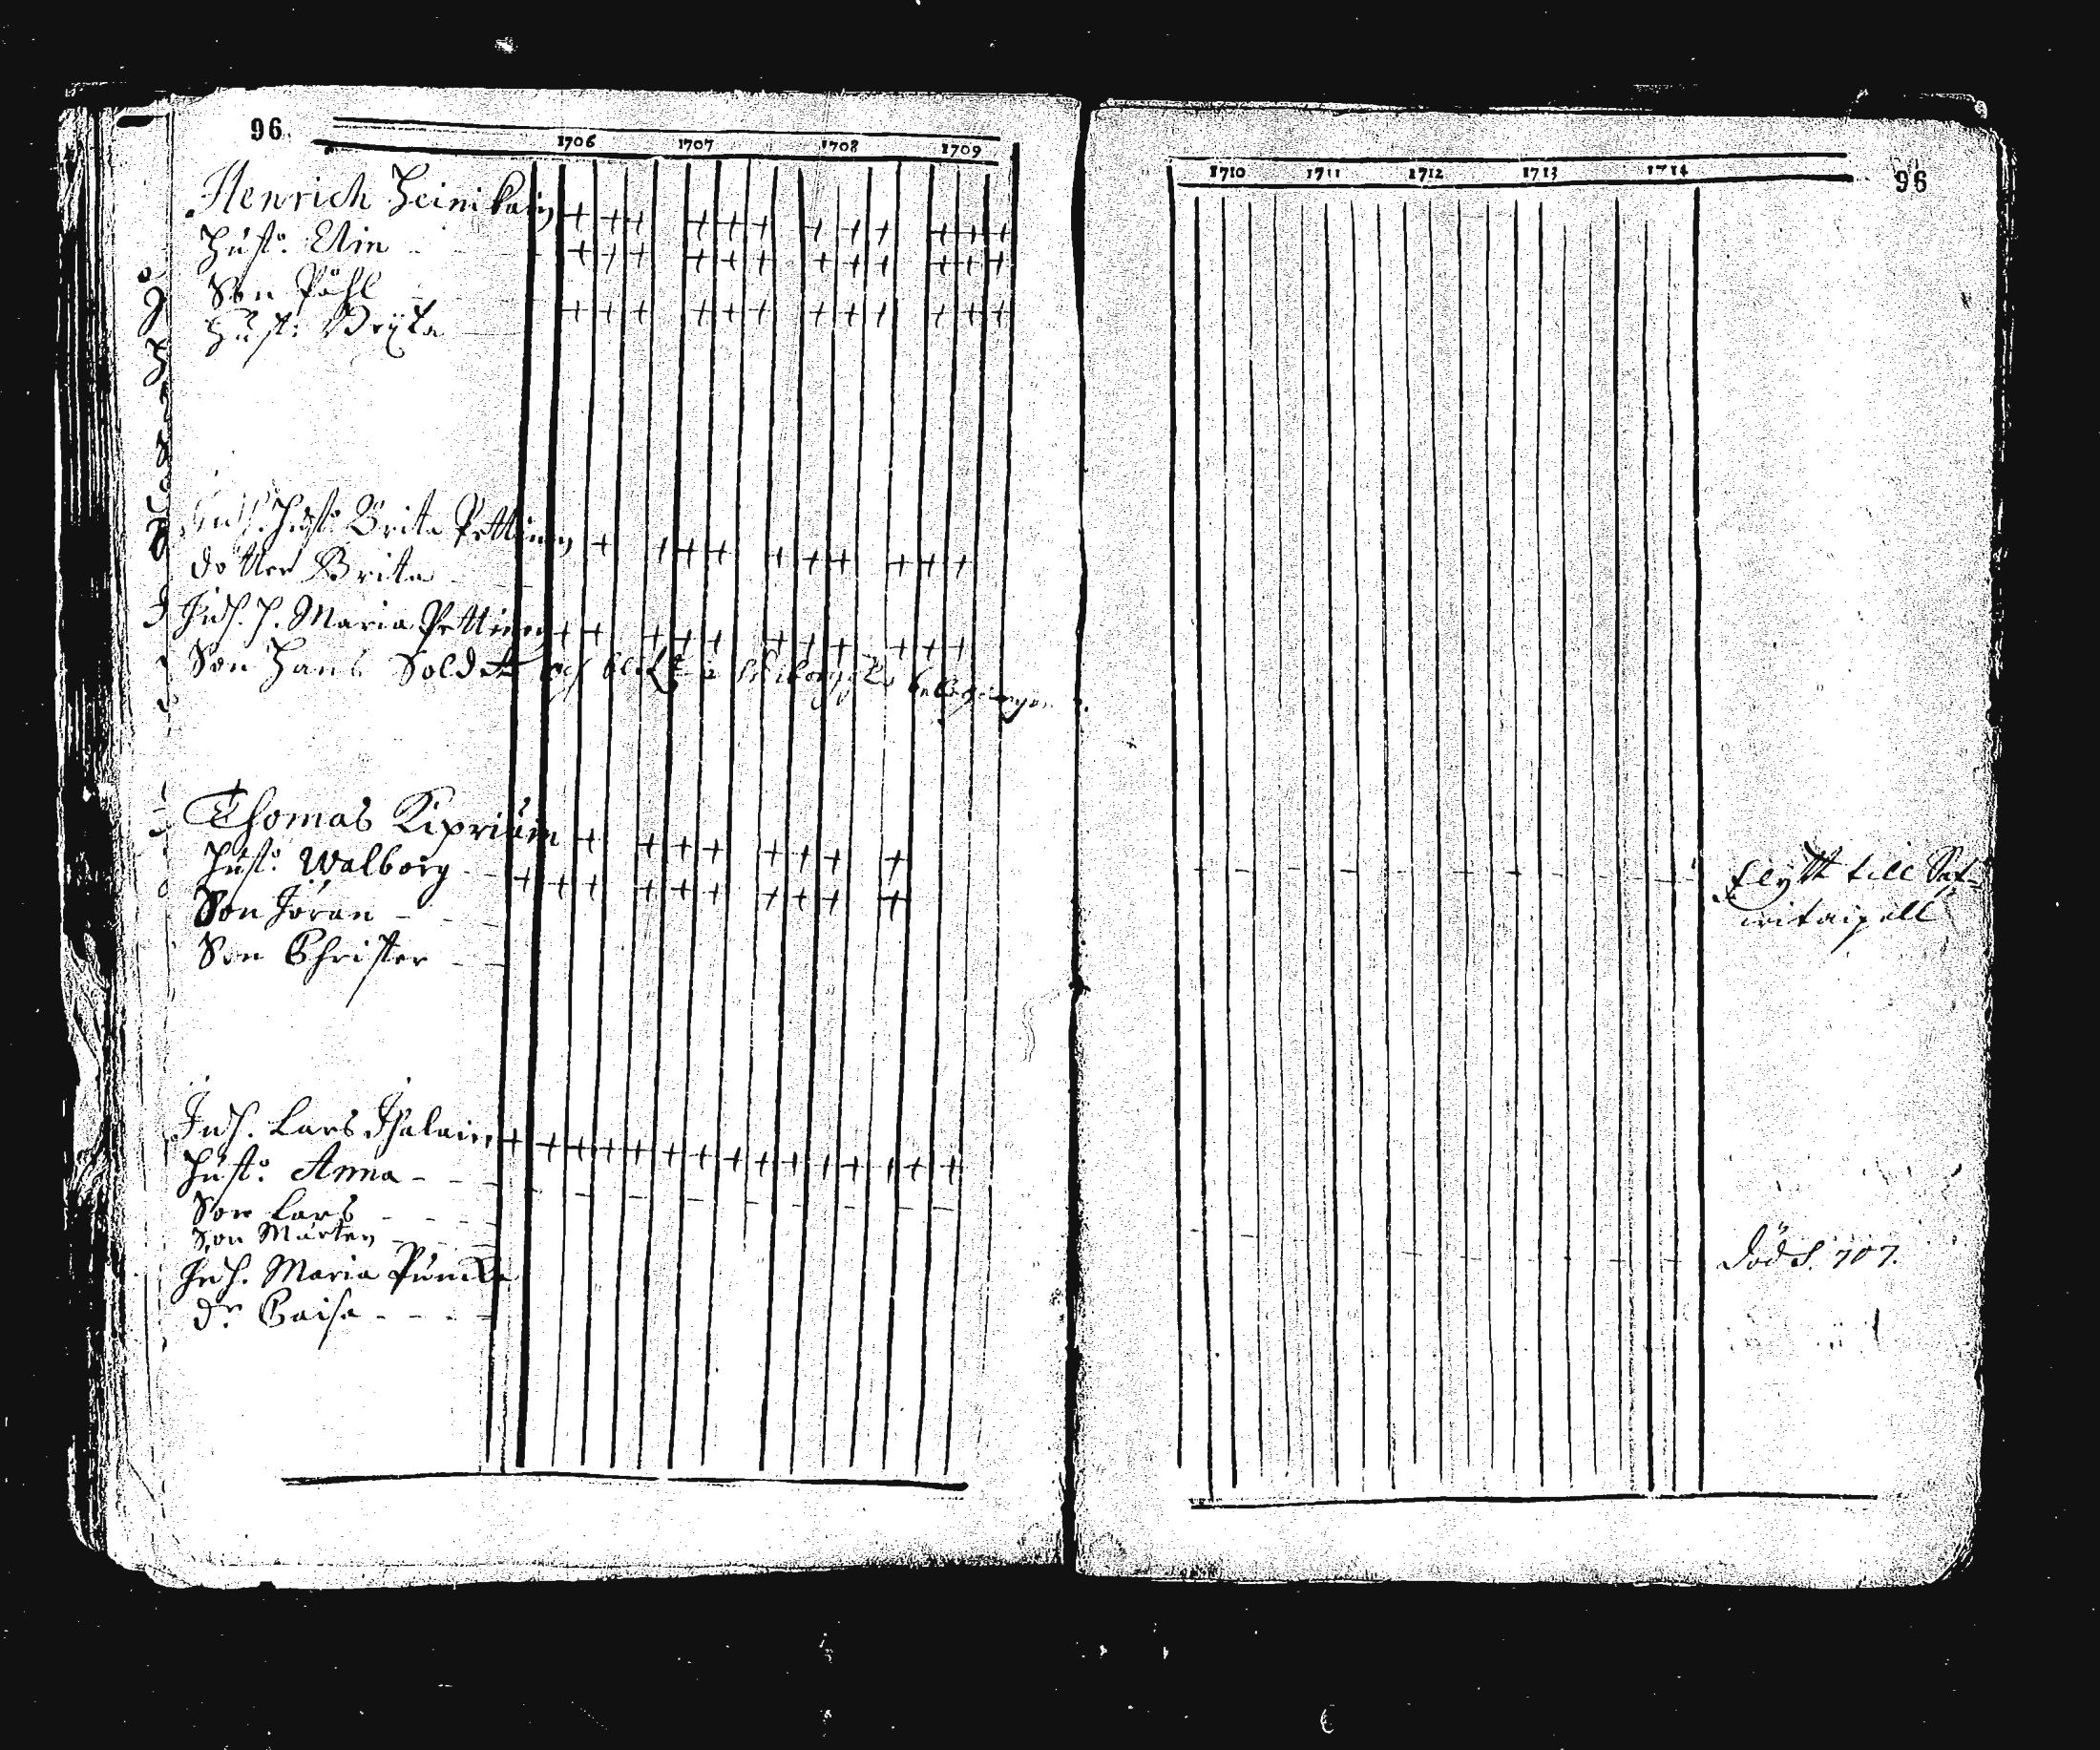 96
1706 1707 1708 1709
Henrich Heinikain
Hust: Elin
Son Påhl
Hust: Bryta
Inh. Hust: Brita Pettinen
dotter Brita
Inh. H. Maria Pettinen
Son Hans Soldat och blef i belägringen
Thomas Kipriäin
Hust: Walborg
Son Jöran
Son Christer
Inh. Lars Ihalain
Hust: Anna
Son Lars
Son Mårten
Inh. Maria
dr Caisa
1710 1711 1712 1713 1714
96
flytt till Sa-
witaipall
död 707.